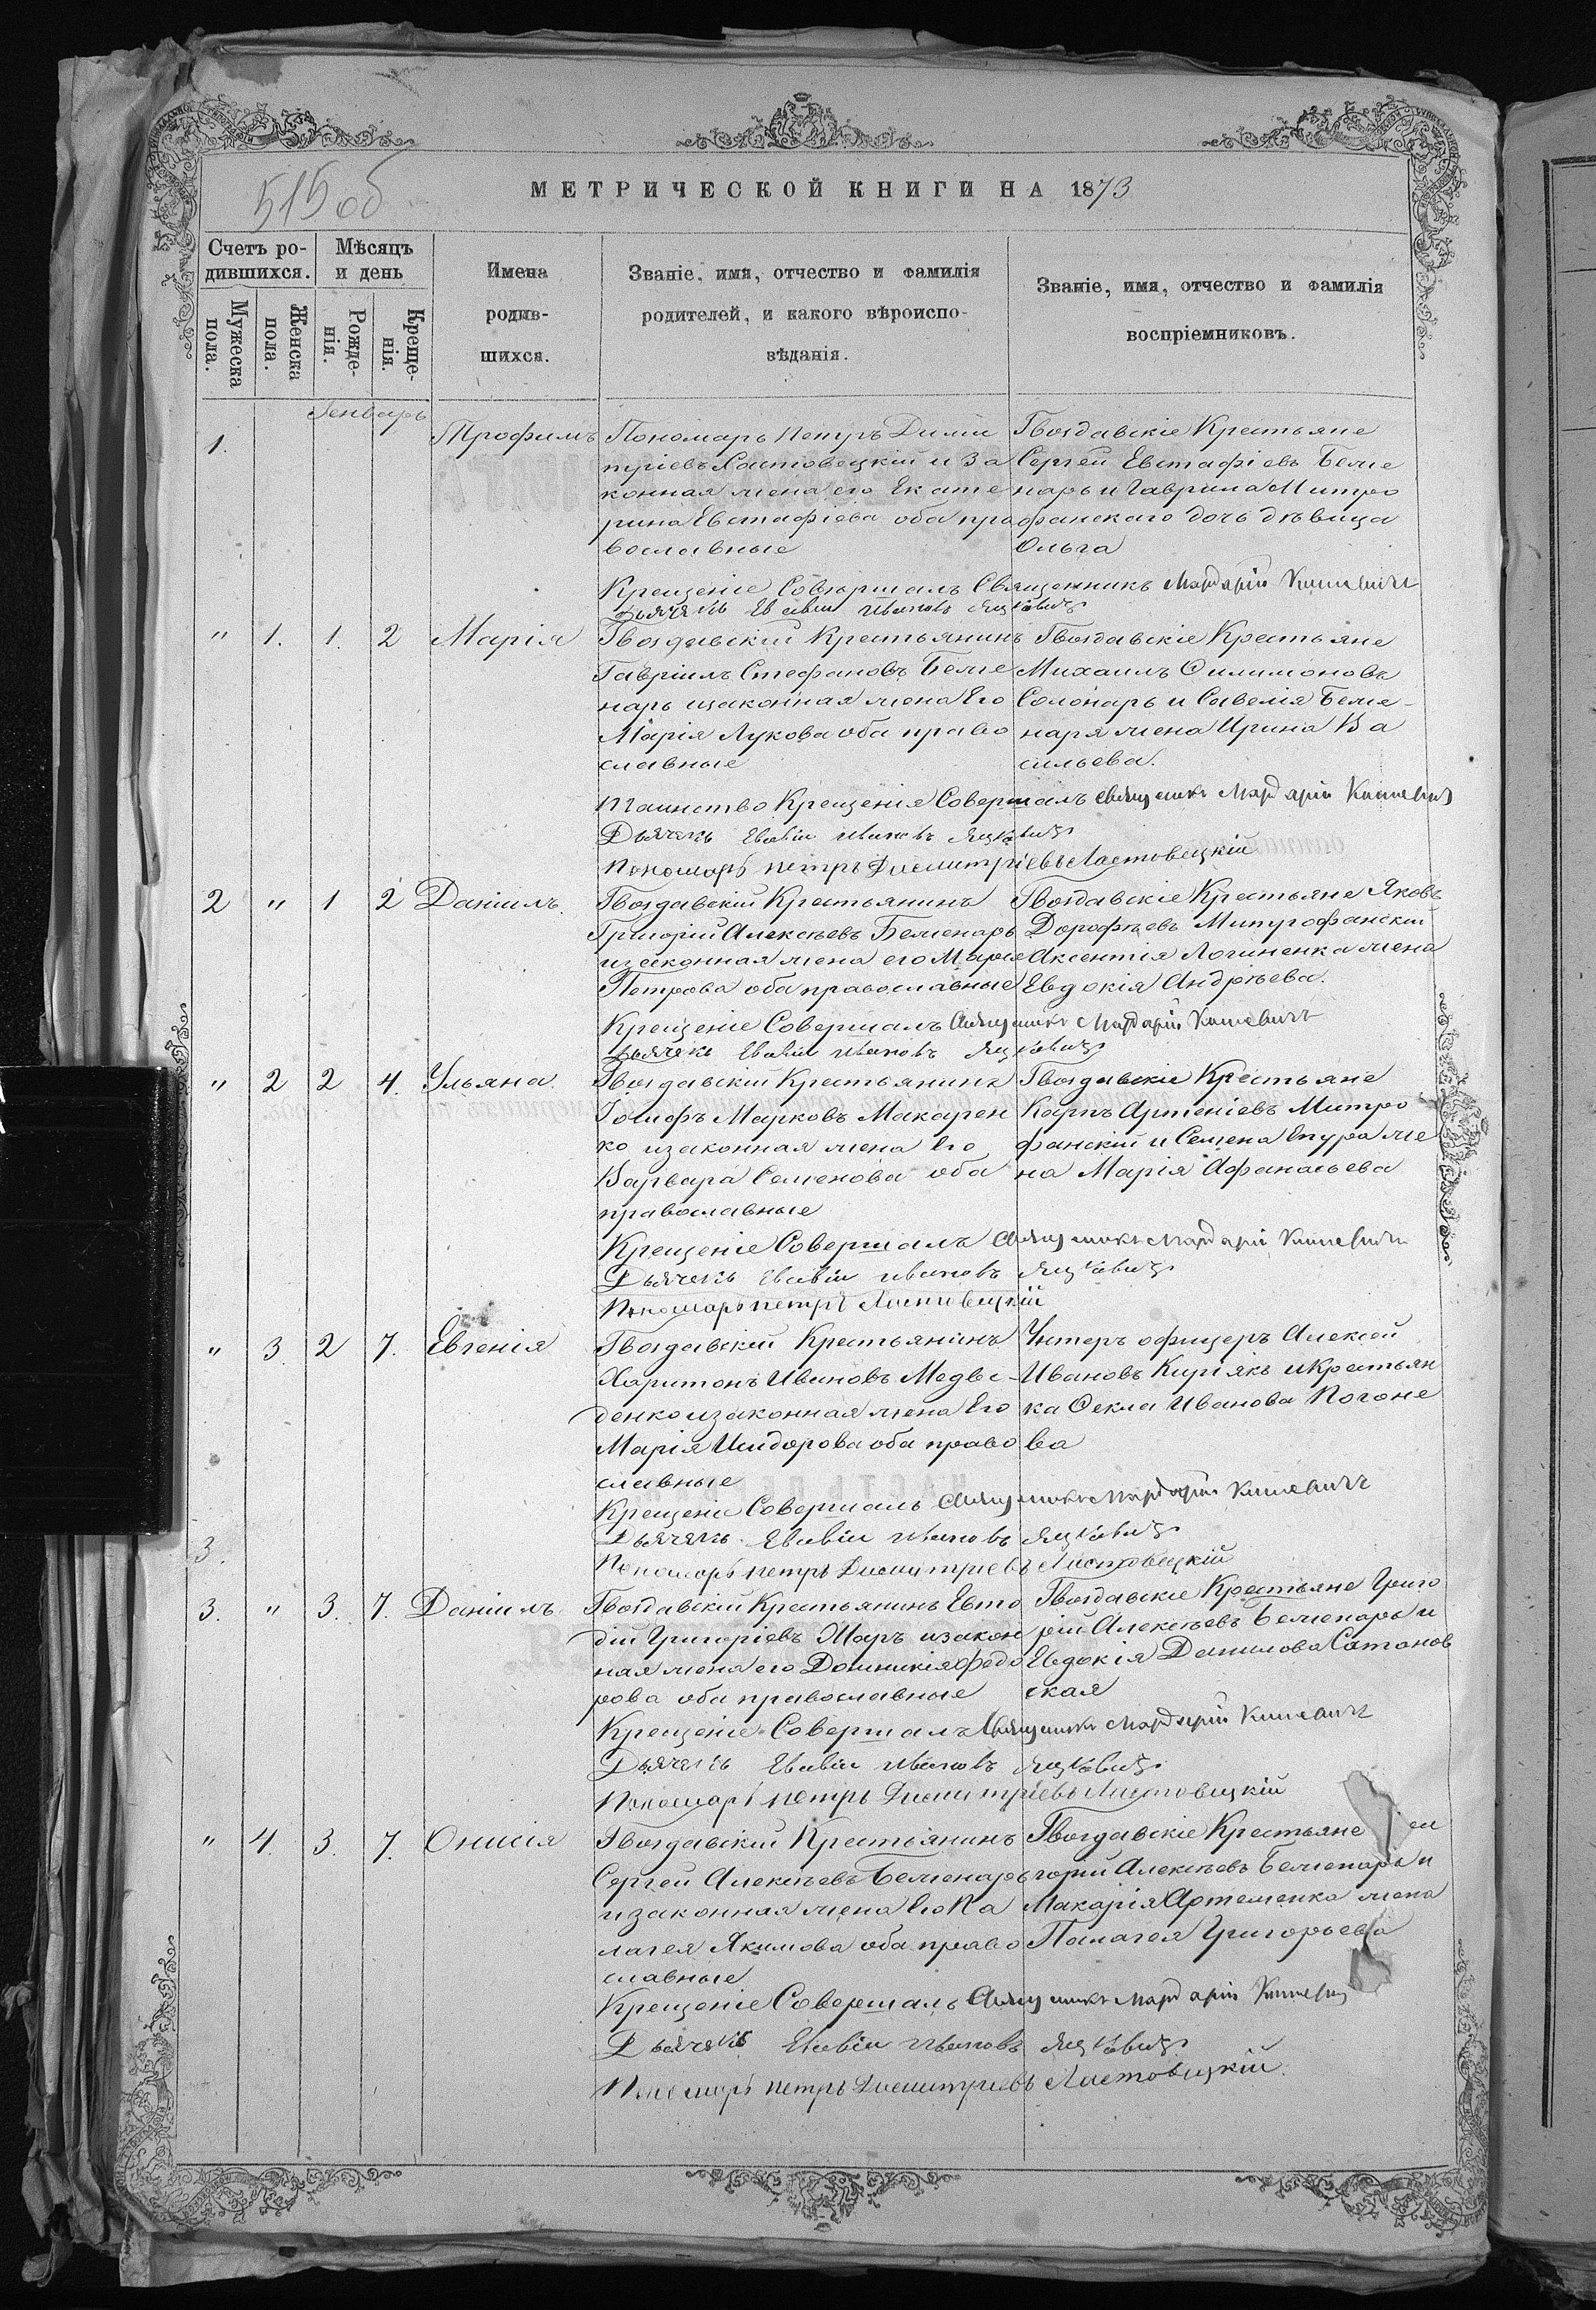 515 об
МЕТРИЧЕСКОЙ КНИГИ НА 1873
Счетъ ро-
дившихся.
Мѣсяцъ
и день
Мужеска
пола.
Женска
пола.
Рожде-
нія.
Креще-
нія.
Имена
родив-
шихся.
Званіе, имя, отчество и фамилія
родителей, и какого вѣроиспо-
вѣданія.
Званіе, имя, отчество и фамилія
воспріемниковъ.
Генварь
1.
Трофимъ
Пономарь Петръ Дими
тріевъ Ластовецкій и за
конная жена его Екате
рина Евстафіева оба пра
вославные
Гвоздавскіе Крестьяне
Сергей Евстафіевъ Беже
нарь и Гаврила Митро
фанскаго дочь дѣвица
Ольга
Крещеніе Совершалъ Священникъ Мардарій Кишевичъ
Дьячекъ Ивановъ
" 1. 1. 2 Марія
Гвоздавскій Крестьянинъ
Гавріилъ Стефановъ Беже
нарь изаконная жена Его
Марія Лукова оба право
славные
Гвоздавскіе Крестьяне
Михаилъ Филимоновъ
Солонарь и Савелія Беже-
наря жена Ирина Ва
сильева.
Таинство Крещенія Совершалъ Священникъ Мардарій Кишевичъ
Дьячекъ Ивановъ
Пономарь Петръ Димитріевъ Ластовецкій
2 " 1 2 Даніилъ.
Гвоздавскій Крестьянинъ
Григорій Алексѣевъ Беженарь
изаконная жена его Марія
Петрова оба православные
Гвоздавскіе Крестьяне Яковъ
Дорофѣевъ Митрофанскій
Аксентія Логиненка жена
Евдокія Андрѣева.
Крещеніе Совершалъ Священникъ Мардарій Кишевичъ
Дьячекъ Ивановъ
" 2 2 4. Ульяна.
Гвоздавскій Крестьянинъ
Іосифъ Марковъ Макарен
ко изаконная жена Его
Варвара Семенова оба
православные
Гвоздавскіе Крестьяне
Карпъ Артеніевъ Митро
фанскій и Семена Епура же
на Марія Афанасьева
Крещеніе Совершалъ Священникъ Мардарій Кишевичъ
Дьячекъ Ивановъ
Пономарь Петръ Ластовецкій
" 3. 2 7. Евгенія
Гвоздавскій Крестьянинъ
Харитонъ Ивановъ Медве-
денко изаконная жена Его
Марія Исидорова оба право
славные
Унтеръ офицеръ Алексей
Ивановъ Киріякъ и Крестьян
ка Фекла Иванова Погоне
ва
Крещеніе Совершалъ Священникъ Мардарій Кишевичъ
Дьячекъ Ивановъ
3.
Пономарь Петръ Димитріевъ Ластовецкій
3. " 3. 7. Даніилъ.
Гвоздавскій Крестьянинъ Евто
дій Григоріевъ Жаръ изакон
ная жена его Домникія Федо
рова оба православные
Гвоздавскіе Крестьяне Григо
рій Алексѣевъ Беженарь и
Евдокія Данилова Сотанов
ская
Крещеніе Совершалъ Священникъ Мардарій Кишевичъ
Дьячекъ Ивановъ
Пономарь Петръ Димитріевъ Ластовецкій
" 4. 3. 7. Онисія
Гвоздавскій Крестьянинъ
Сергей Алексѣевъ Беженарь
изаконная жена Его Па
лагея Якимова оба право
славные
Гвоздавскіе Крестьяне
горій Алексѣевъ Беженарь и
Макарія Артеменка жена
Палагея Григорьева
Крещеніе Совершалъ Священникъ Мардарій Кишевичъ
Дьячекъ Ивановъ
Пономарь Петръ Димитріевъ Ластовецкій.